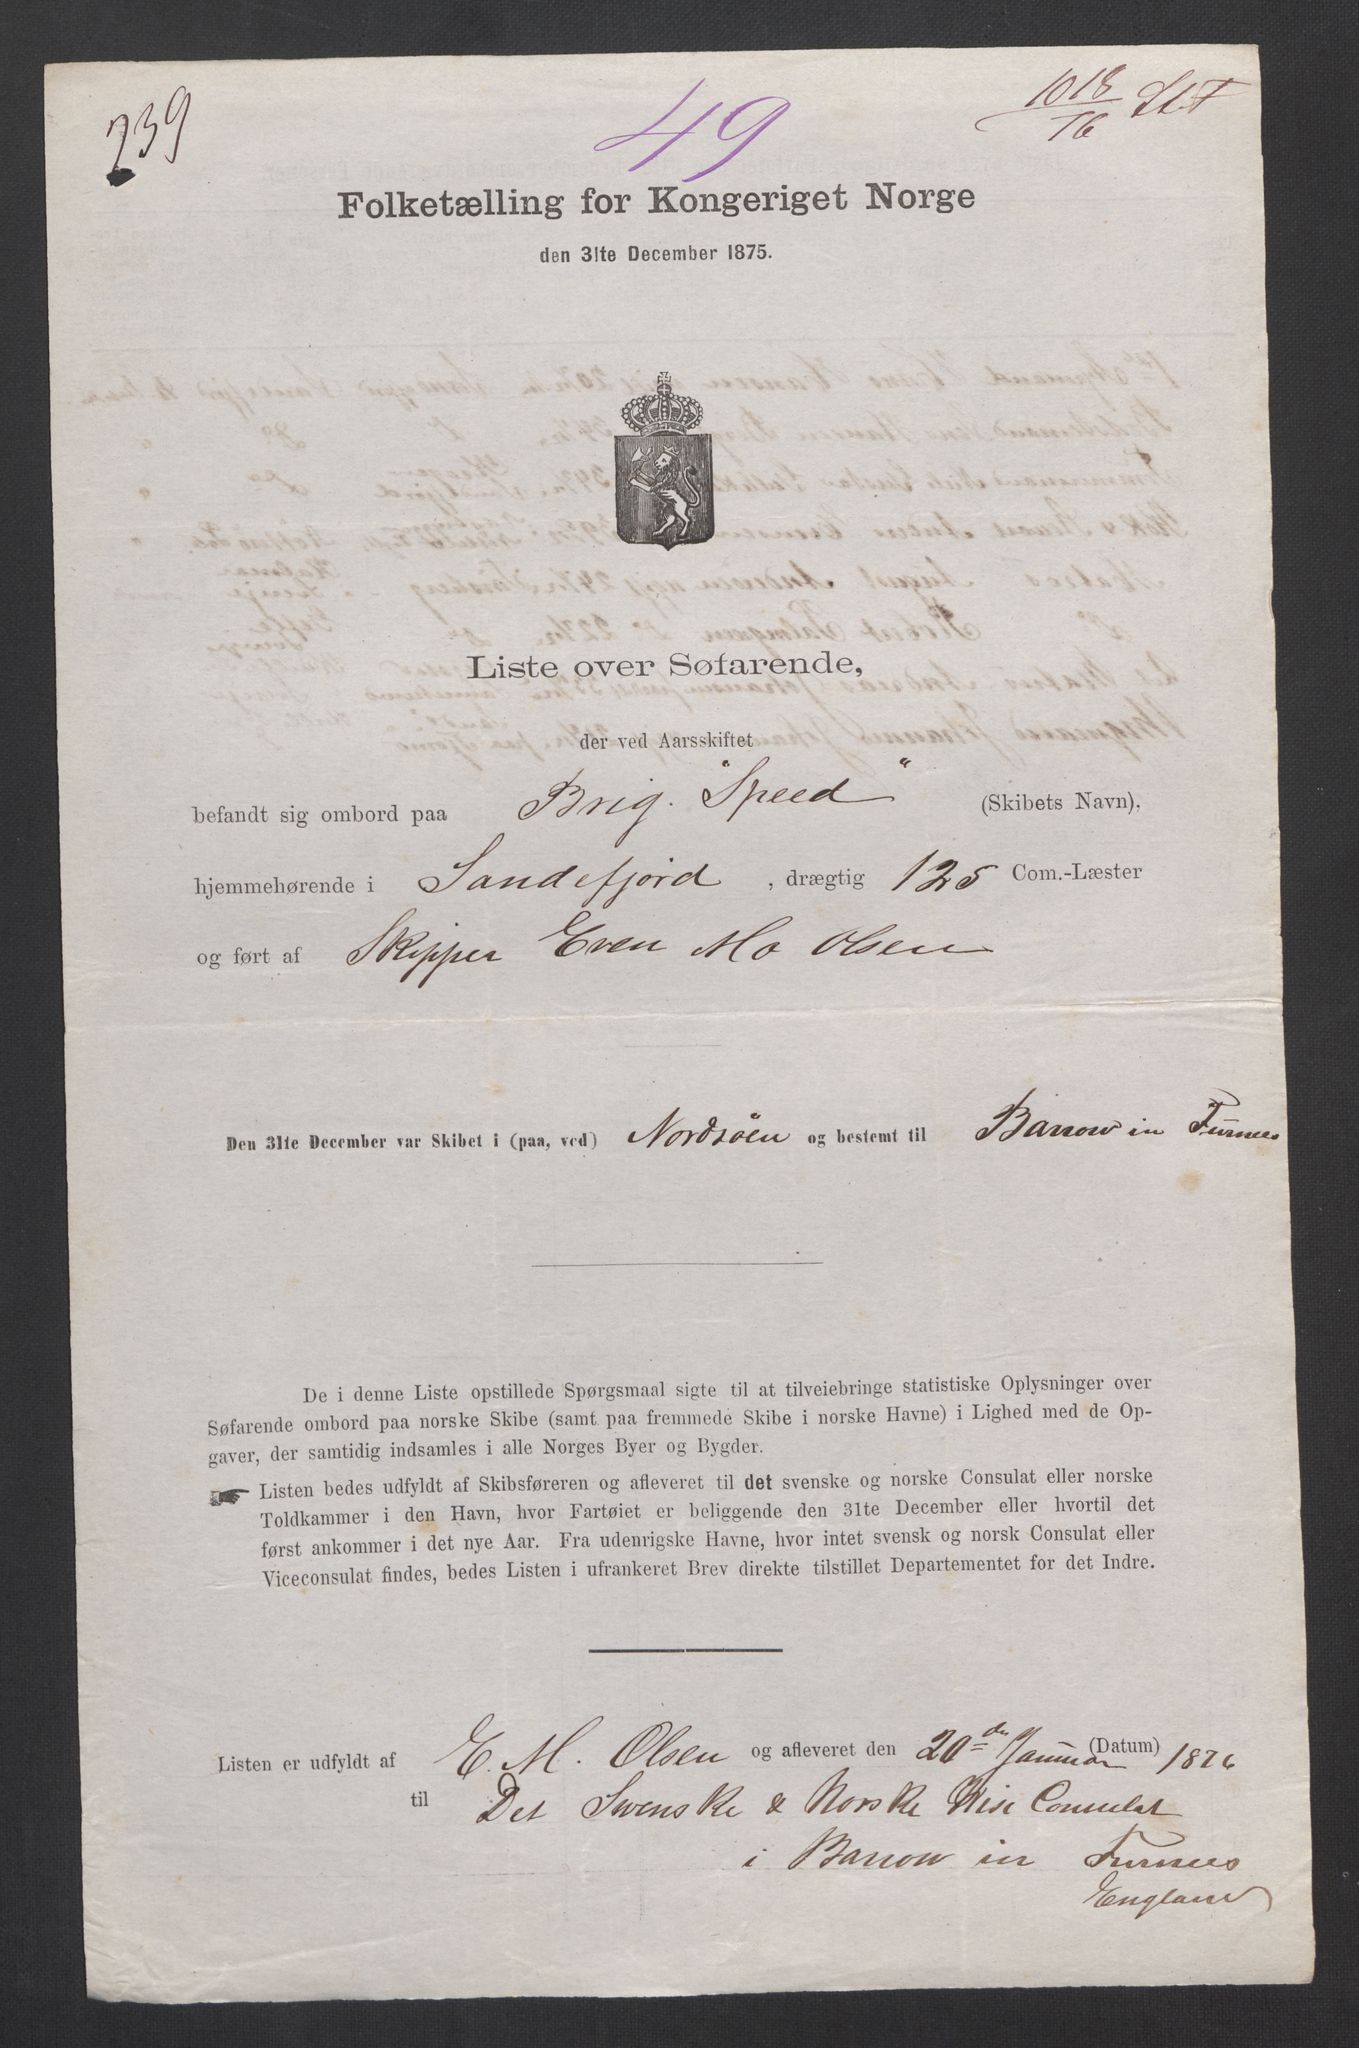 239
49
1018/76 St.
Folketælling for Kongeriget Norge
den 31te December 1875.
Liste over Søfarende,
der ved Aarsskiftet
befandt sig ombord paa Brig. "Speed" (Skibets Navn),
hjemmehørende i Sandefjord, drægtig 125 Com.-Læster
og ført af Skipper Even Mo Olsen
Den 31te December var Skibet i (paa, ved) Nordsöen og bestemt til Barrow in Furnees
De i denne Liste opstillede Spørgsmaal sigte til at tilveiebringe statistiske Oplysninger over
Søfarende ombord paa norske Skibe (samt paa fremmede Skibe i norske Havne) i Lighed med de Op-
gaver, der samtidig indsamles i alle Norges Byer og Bygder.
Listen bedes udfyldt af Skibsføreren og afleveret til det svenske og norske Consulat eller norske
Toldkammer i den Havn, hvor Fartøiet er beliggende den 31te December eller hvortil det
først ankommer i det nye Aar. Fra udenrigske Havne, hvor intet svensk og norsk Consulat eller
Viceconsulat findes, bedes Listen i ufrankeret Brev direkte tilstillet Departementet for det Indre.
Listen er udfyldt af E. M. Olsen og afleveret den 20de Januar (Datum) 1876
til Det Svenske & Norske Vise Consulat
i Barrow in Furnees
England